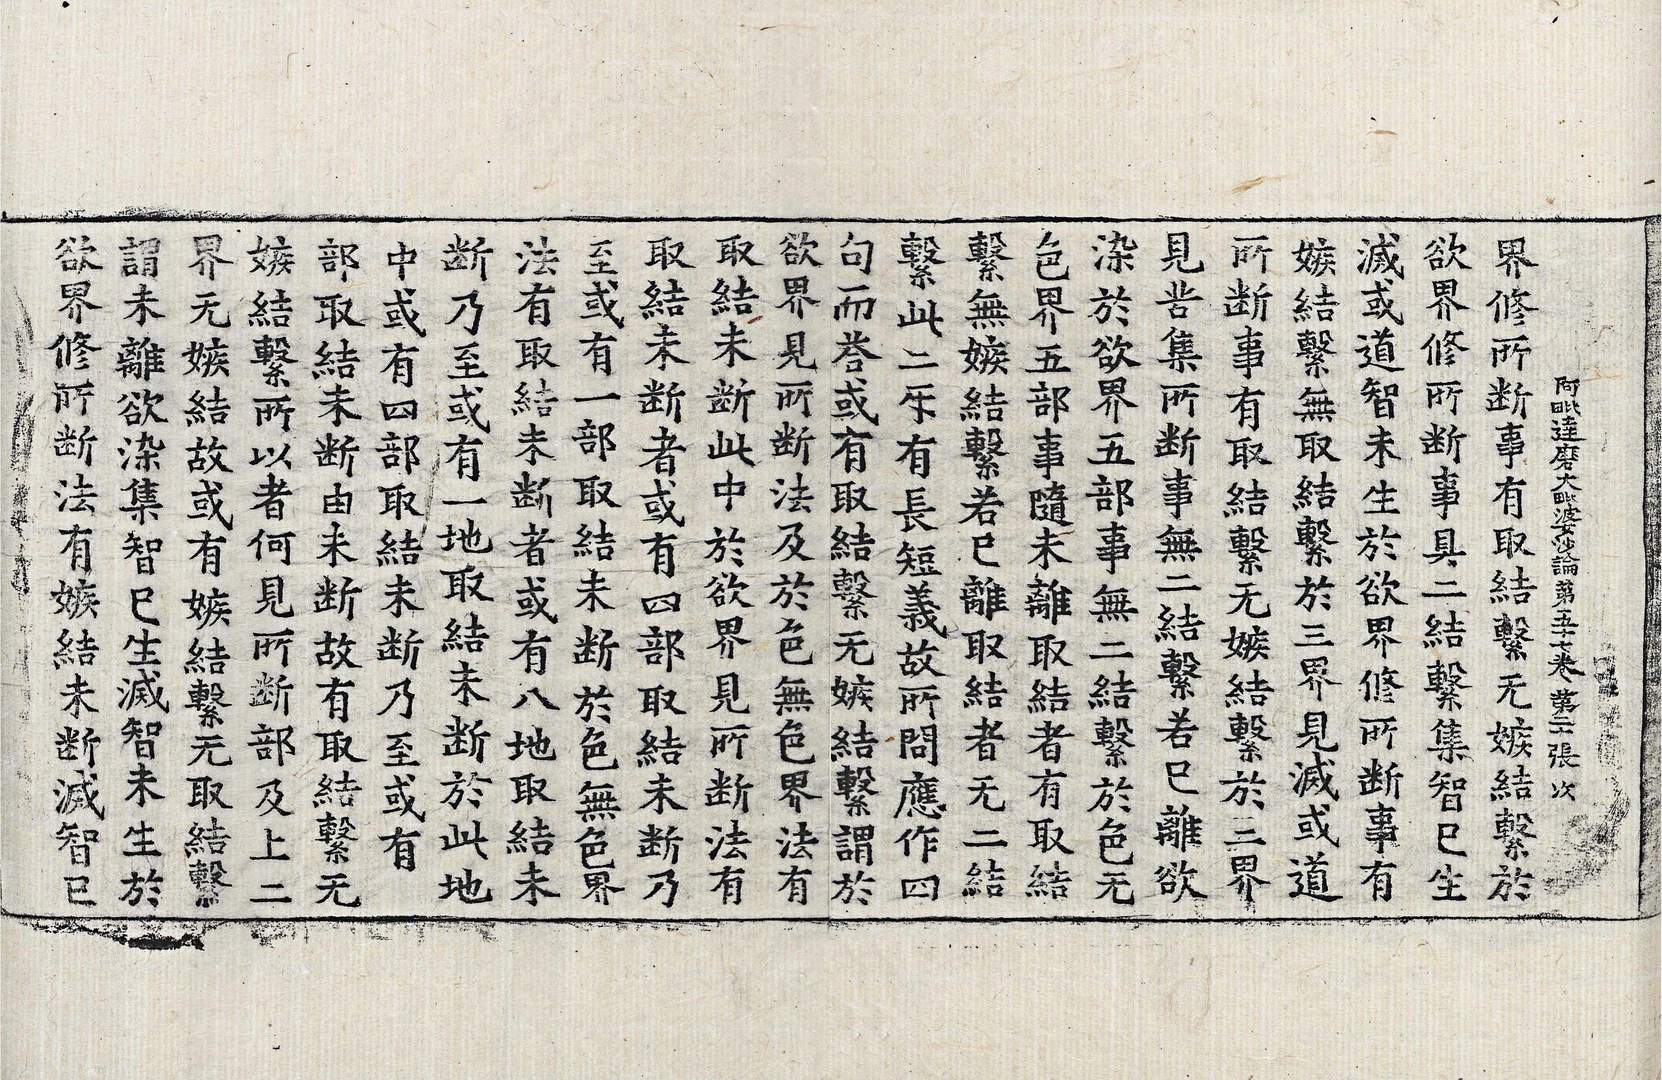 阿毗達磨大毗婆沙論第五十七卷 第二十張 次
界修所断事有取結繫无嫉結繫於
欲界修所断事具二結繫集智已生
滅或道智未生於欲界修所断事有
嫉結繫無取結繫於三界見滅或道
所断事有取結繫无嫉結繫於三界
見苦集所断事無二結繫若已離欲
染於欲界五部事無二結繫於色无
色界五部事隨未離取結者有取結
繫無嫉結繫若已離取結者无二結
繫此二互有長短義故所問應作四
句而荅或有取結繫无嫉結繫謂於
欲界見所断法及於色無色界法有
取結未断此中於欲界見所断法有
取結未断者或有四部取結未断乃
至或有一部取結未断於色無色界
法有取結未断者或有八地取結未
断乃至或有一地取結未断於此地
中或有四部取結未断乃至或有
部取結未断由未断故有取結繫无
嫉結繫所以者何見所断部及上二
界无嫉結故或有嫉結繫无取結繫
謂未離欲染集智已生滅智未生於
欲界修所断法有嫉結未断滅智已